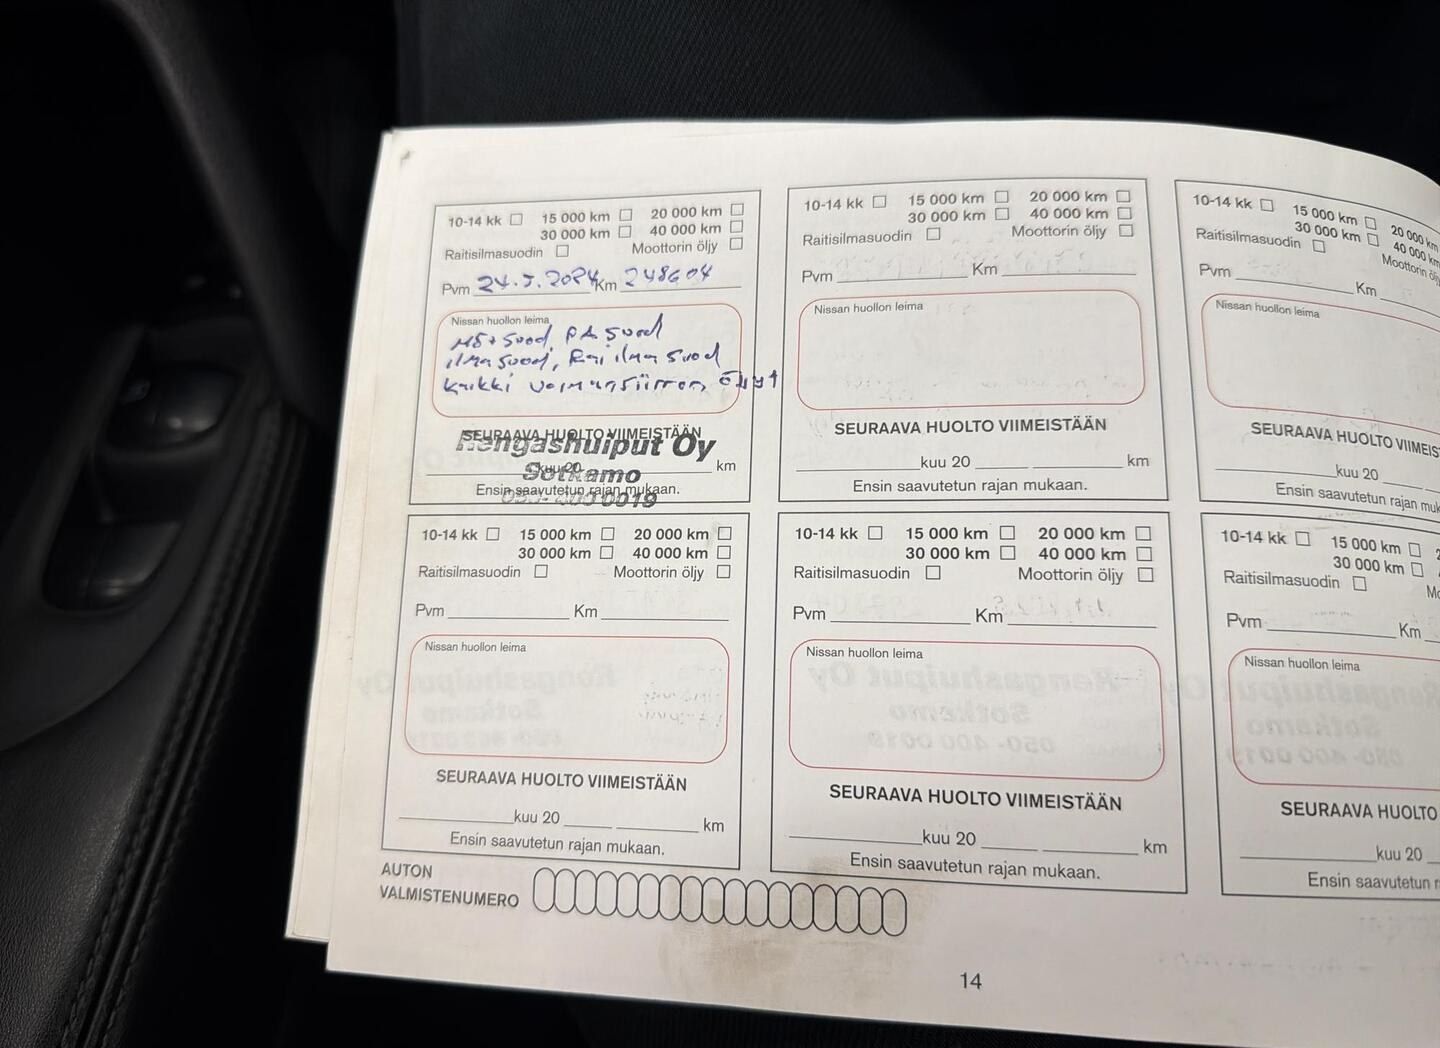 10-14 kk 15 000 km 20 000 km
30 000 km 40 000 km
Raitisilmasuodin Moottorin öljy
Pvm 24.5.2024 Km 248604
Nissan huollon leima
suod, PA suod
ilmasuod, Rai ilma suod
kaikki voimansiirron öljyt
SEURAAVA HUOLTO VIIMEISTÄÄN
Rengashuiput Oy
kuu 20 km
Sotkamo
Ensin saavutetun rajan mukaan.
050-400 0019
10-14 kk 15 000 km 20 000 km
30 000 km 40 000 km
Raitisilmasuodin Moottorin öljy
Pvm Km
Nissan huollon leima
SEURAAVA HUOLTO VIIMEISTÄÄN
kuu 20 km
Ensin saavutetun rajan mukaan.
10-14 kk 15 000 km 20 000 km
30 000 km 40 000 km
Raitisilmasuodin Moottorin öl
Pvm Km
Nissan huollon leima
SEURAAVA HUOLTO VIIMEIS
kuu 20
Ensin saavutetun rajan muk
10-14 kk 15 000 km 20 000 km
30 000 km 40 000 km
Raitisilmasuodin Moottorin öljy
Pvm Km
Nissan huollon leima
SEURAAVA HUOLTO VIIMEISTÄÄN
kuu 20 km
Ensin saavutetun rajan mukaan.
10-14 kk 15 000 km 20 000 km
30 000 km 40 000 km
Raitisilmasuodin Moottorin öljy
Pvm Km
Nissan huollon leima
SEURAAVA HUOLTO VIIMEISTÄÄN
kuu 20 km
Ensin saavutetun rajan mukaan.
10-14 kk 15 000 km 2
30 000 km
Raitisilmasuodin Mo
Pvm Km
Nissan huollon leima
SEURAAVA HUOLTO
kuu 20
Ensin saavutetun r
AUTON
VALMISTENUMERO
14